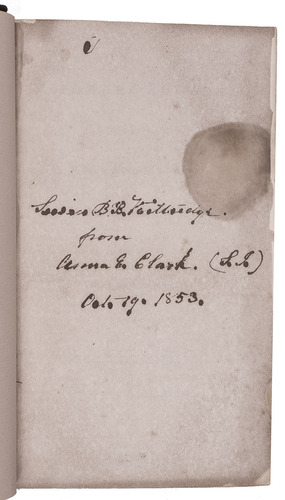 B. B. Kittredge.
from
Anna E. Clark. (S. S)
Oct. 19. 1853.